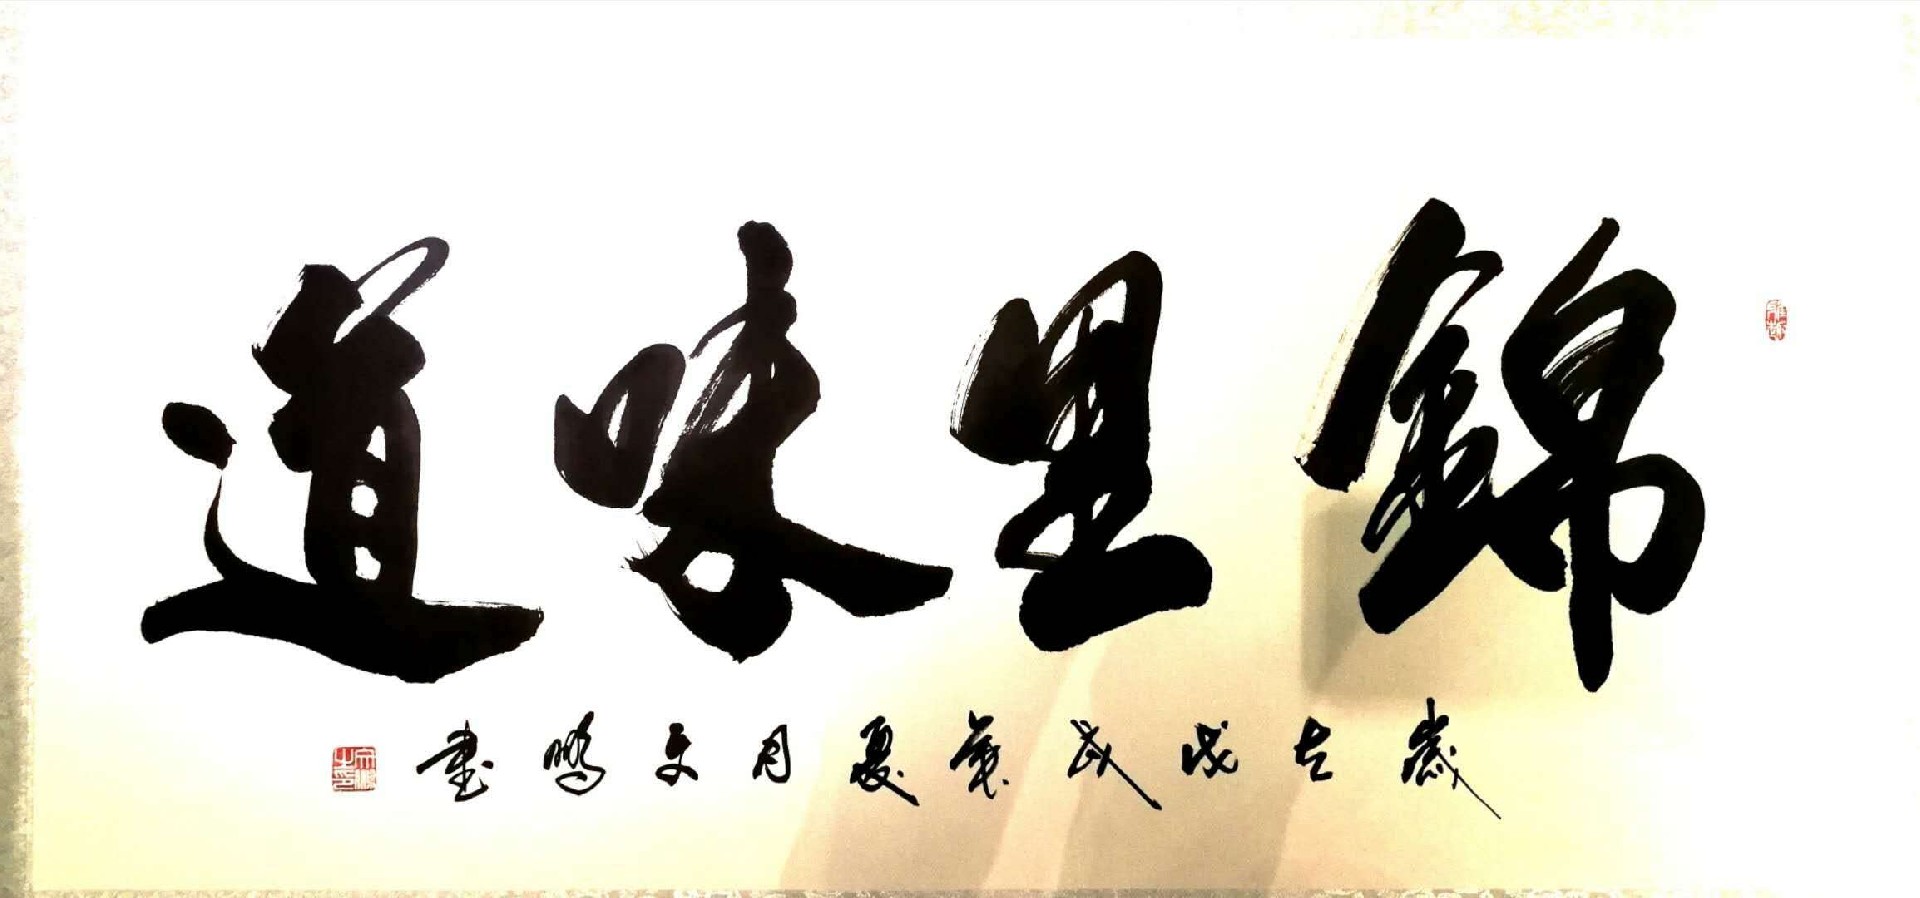 錦里味道
歲在戊戌年夏月文鵬書